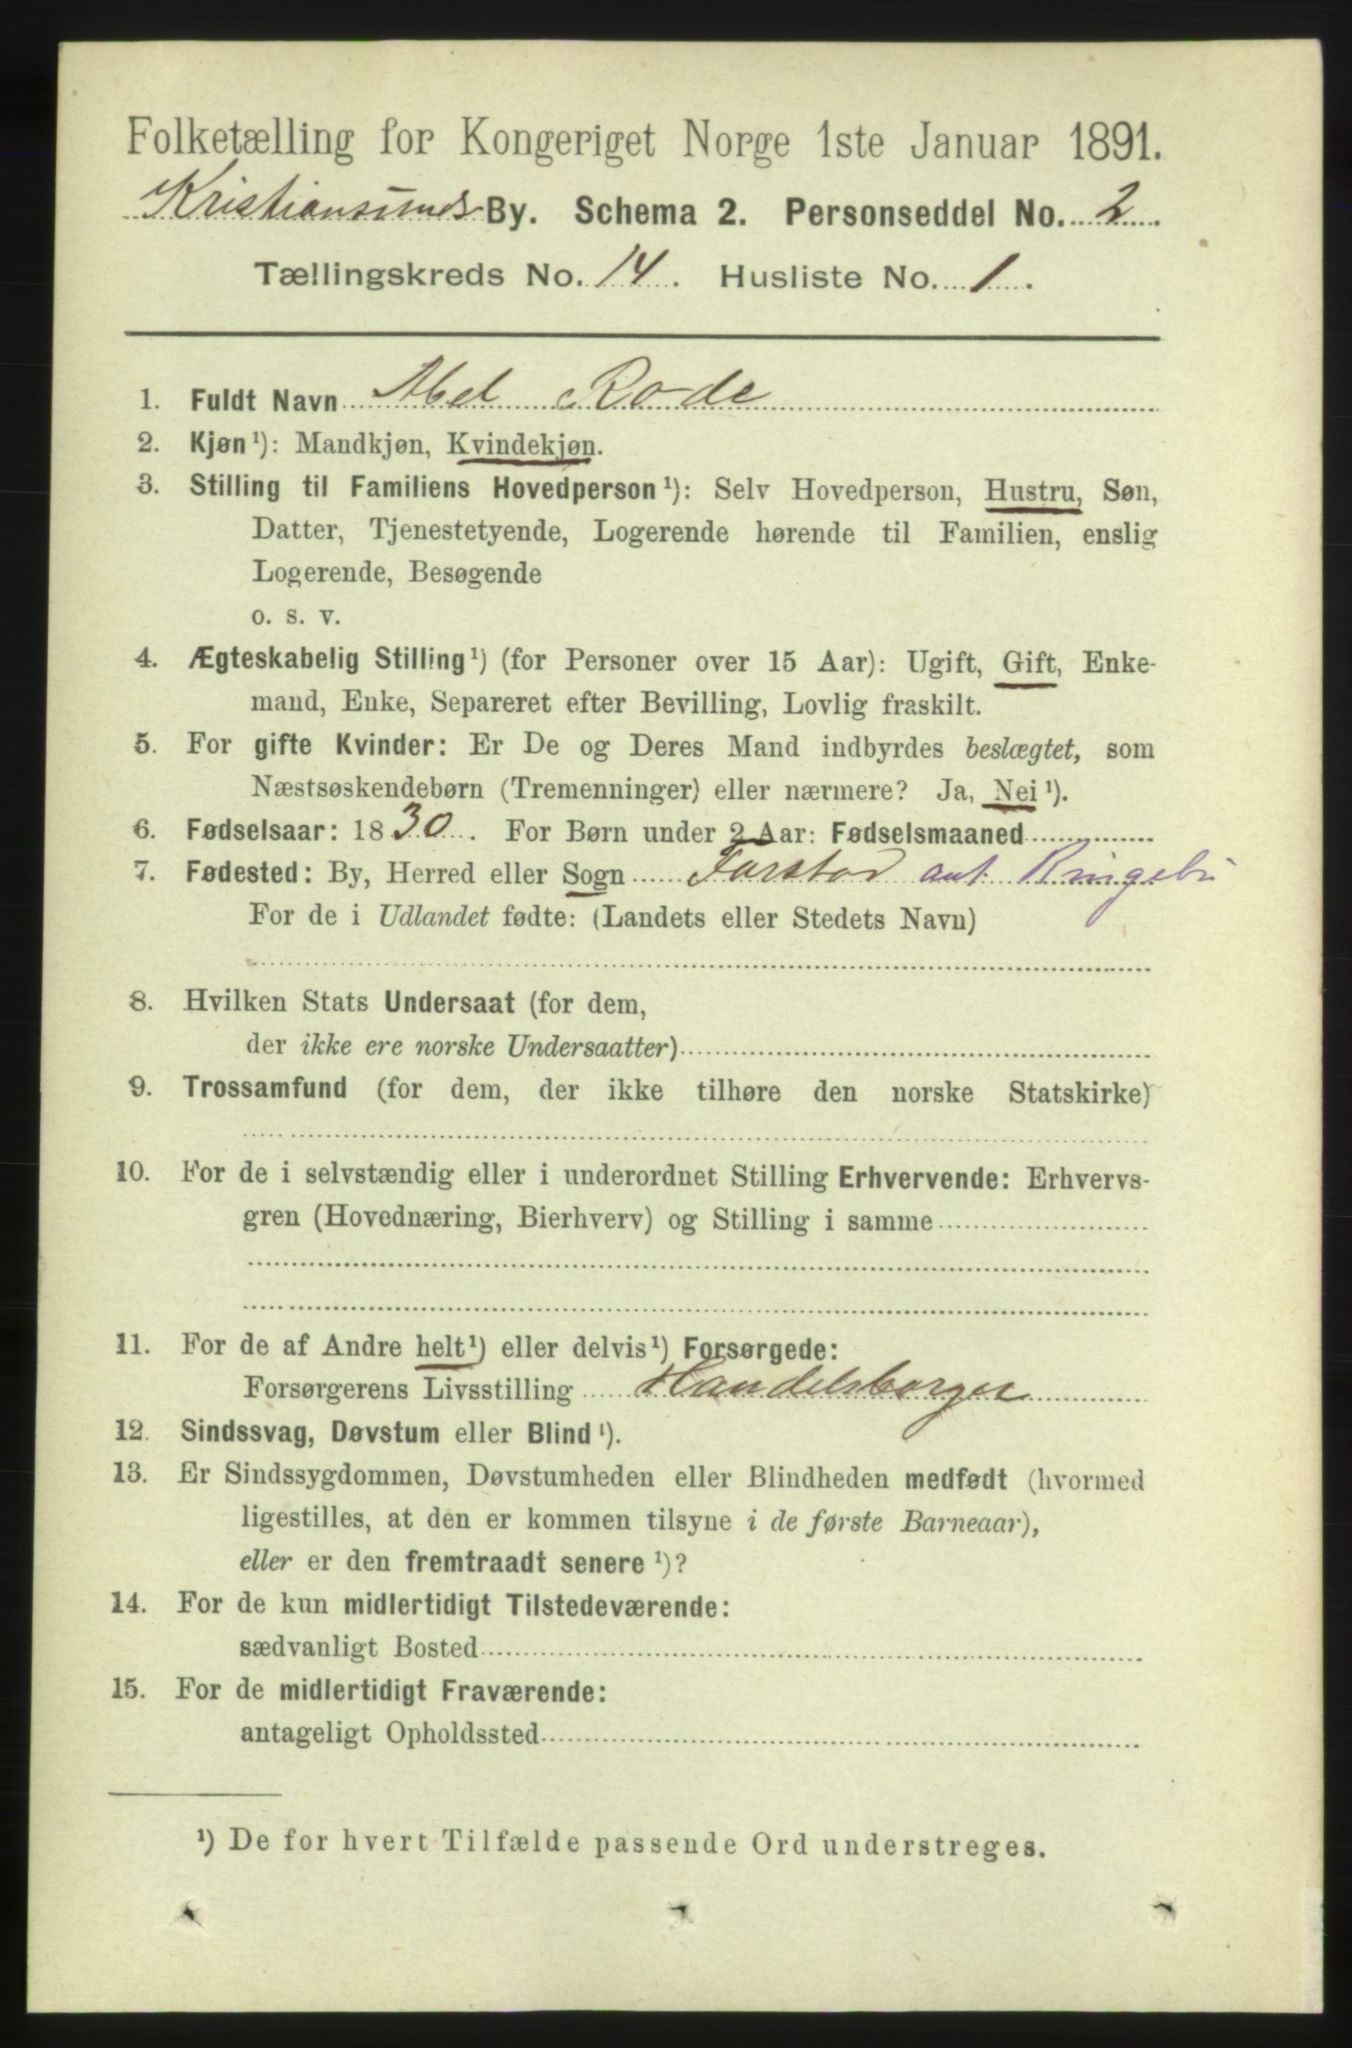 Folketælling for Kongeriget Norge 1ste Januar 1891.
Kristiansunds By. Schema 2. Personseddel No. 2.
Tællingskreds No. 14. Husliste No. 1.
1. Fuldt Navn Abel Rode
2. Kjøn¹): Mandkjøn, Kvindekjøn.
3. Stilling til Familiens Hovedperson¹): Selv Hovedperson, Hustru, Søn,
Datter, Tjenestetyende, Logerende hørende til Familien, enslig
Logerende, Besøgende
o. s. v.
4. Ægteskabelig Stilling¹) (for Personer over 15 Aar): Ugift, Gift, Enke-
mand, Enke, Separeret efter Bevilling, Lovlig fraskilt.
5. For gifte Kvinder: Er De og Deres Mand indbyrdes beslægtet, som
Næstsøskendebørn (Tremenninger) eller nærmere? Ja, Nei¹).
6. Fødselsaar: 1830. For Børn under 2 Aar: Fødselsmaaned
7. Fødested: By, Herred eller Sogn Farstad ant. Ringebu
For de i Udlandet fødte: (Landets eller Stedets Navn)
8. Hvilken Stats Undersaat (for dem,
der ikke ere norske Undersaatter)
9. Trossamfund (for dem, der ikke tilhøre den norske Statskirke)
10. For de i selvstændig eller i underordnet Stilling Erhvervende: Erhvervs-
gren (Hovednæring, Bierhverv) og Stilling i samme
11. For de af Andre helt¹) eller delvis¹) Forsørgede:
Forsørgerens Livsstilling Handelsborger
12. Sindssvag, Døvstum eller Blind¹).
13. Er Sindssygdommen, Døvstumheden eller Blindheden medfødt (hvormed
ligestilles, at den er kommen tilsyne i de første Barneaar),
eller er den fremtraadt senere¹)?
14. For de kun midlertidigt Tilstedeværende:
sædvanligt Bosted
15. For de midlertidigt Fraværende:
antageligt Opholdssted
¹) De for hvert Tilfælde passende Ord understreges.